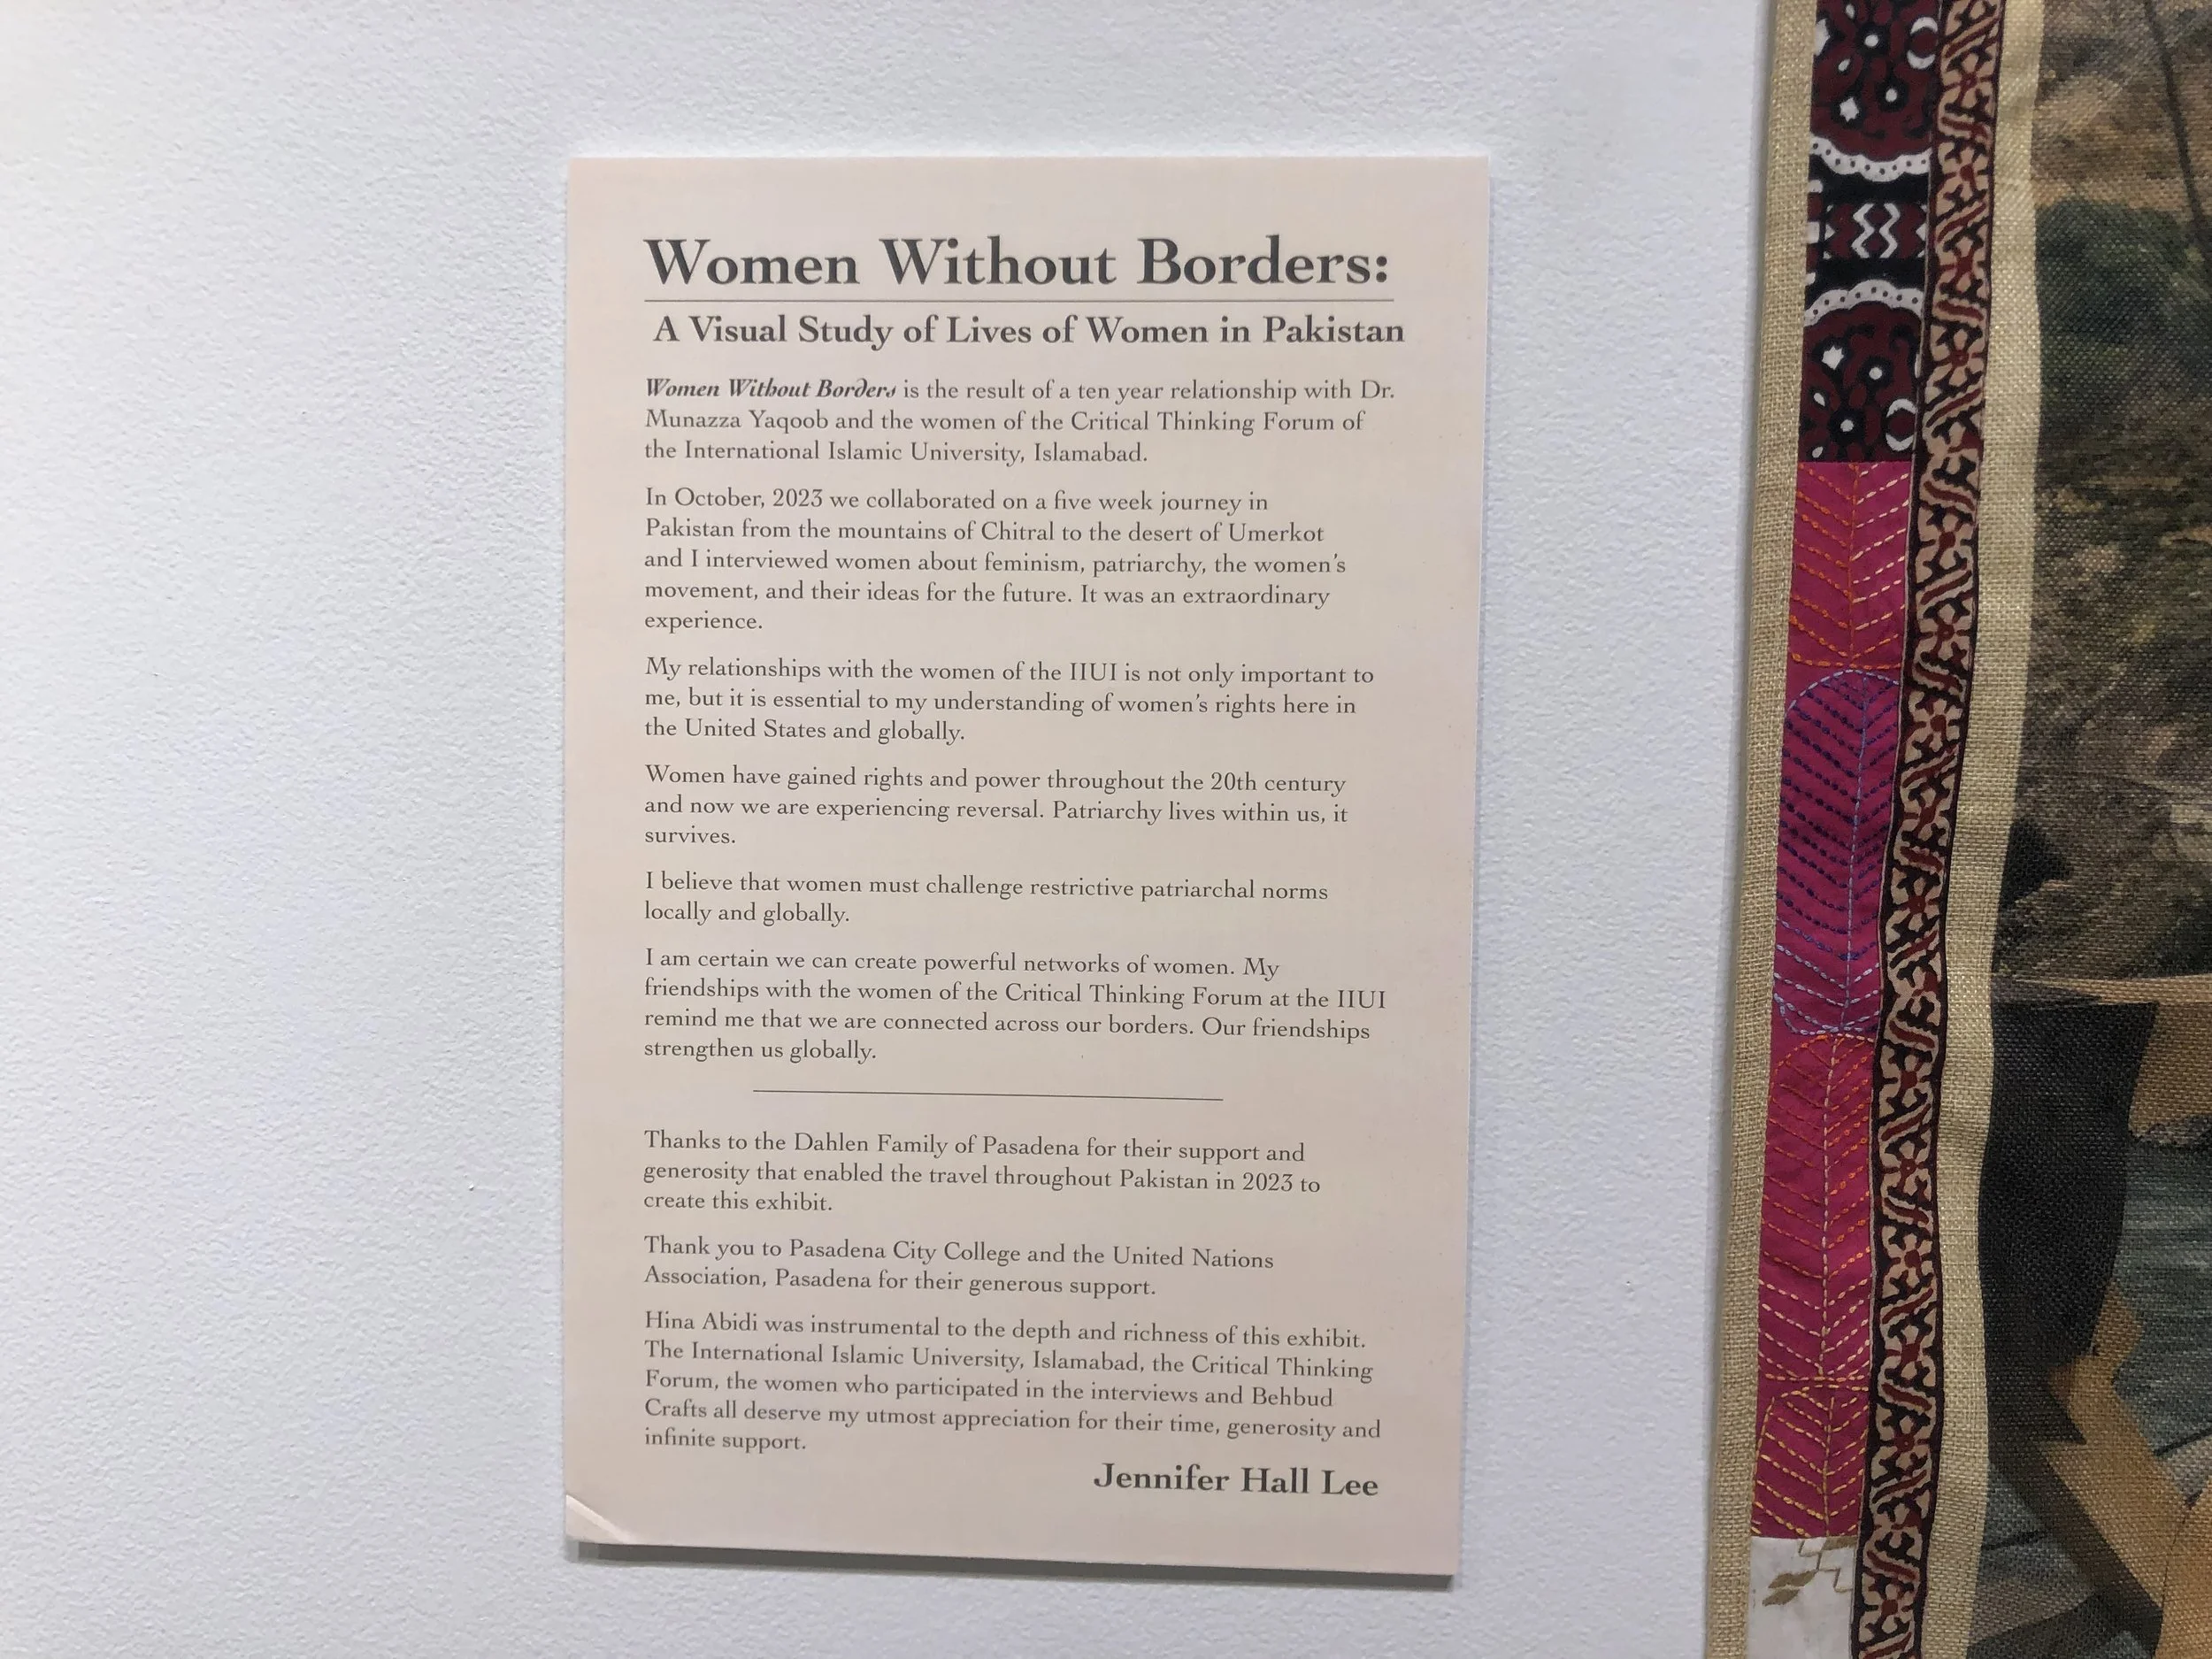 Women Without Borders:
A Visual Study of Lives of Women in Pakistan
Women Without Borders is the result of a ten year relationship with Dr.
Munazza Yaqoob and the women of the Critical Thinking Forum of
the International Islamic University, Islamabad.
In October, 2023 we collaborated on a five week journey in
Pakistan from the mountains of Chitral to the desert of Umerkot
and I interviewed women about feminism, patriarchy, the women's
movement, and their ideas for the future. It was an extraordinary
experience.
My relationships with the women of the IIUI is not only important to
me, but it is essential to my understanding of women's rights here in
the United States and globally.
Women have gained rights and power throughout the 20th century
and now we are experiencing reversal. Patriarchy lives within us, it
survives.
I believe that women must challenge restrictive patriarchal norms
locally and globally.
I am certain we can create powerful networks of women. My
friendships with the women of the Critical Thinking Forum at the IIUI
remind me that we are connected across our borders. Our friendships
strengthen us globally.
Thanks to the Dahlen Family of Pasadena for their support and
generosity that enabled the travel throughout Pakistan in 2023 to
create this exhibit.
Thank you to Pasadena City College and the United Nations
Association, Pasadena for their generous support.
Hina Abidi was instrumental to the depth and richness of this exhibit.
The International Islamic University, Islamabad, the Critical Thinking
Forum, the women who participated in the interviews and Behbud
Crafts all deserve my utmost appreciation for their time, generosity and
infinite support.
Jennifer Hall Lee